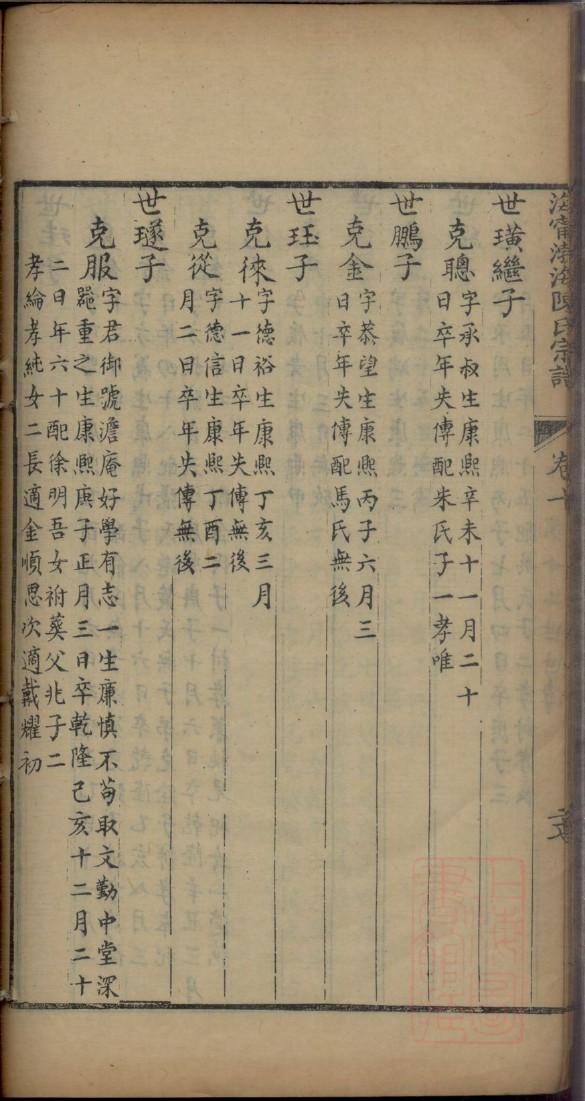 海甯渤海陳氏宗譜
卷十
世璜繼子
克聰字承叔生康熙辛未十一月二十
日卒年失傳配朱氏子一孝唯
世鵬子
克金字恭望生康熙丙子六月三
日卒年失傳配馬氏無後
世珏子
克徠字德裕生康熙丁亥三月
十一日卒年失傳無後
克從字德信生康熙丁酉二
月二日卒年失傳無後
世璲子
克服字君御號澹庵好學有志一生廉慎不苟取文勤中堂深
器重之生康熙庚子正月三日卒乾隆己亥十二月二十
二日年六十配徐明吾女祔葬父兆子二
孝綸孝純女二長適金順思次適戴耀初